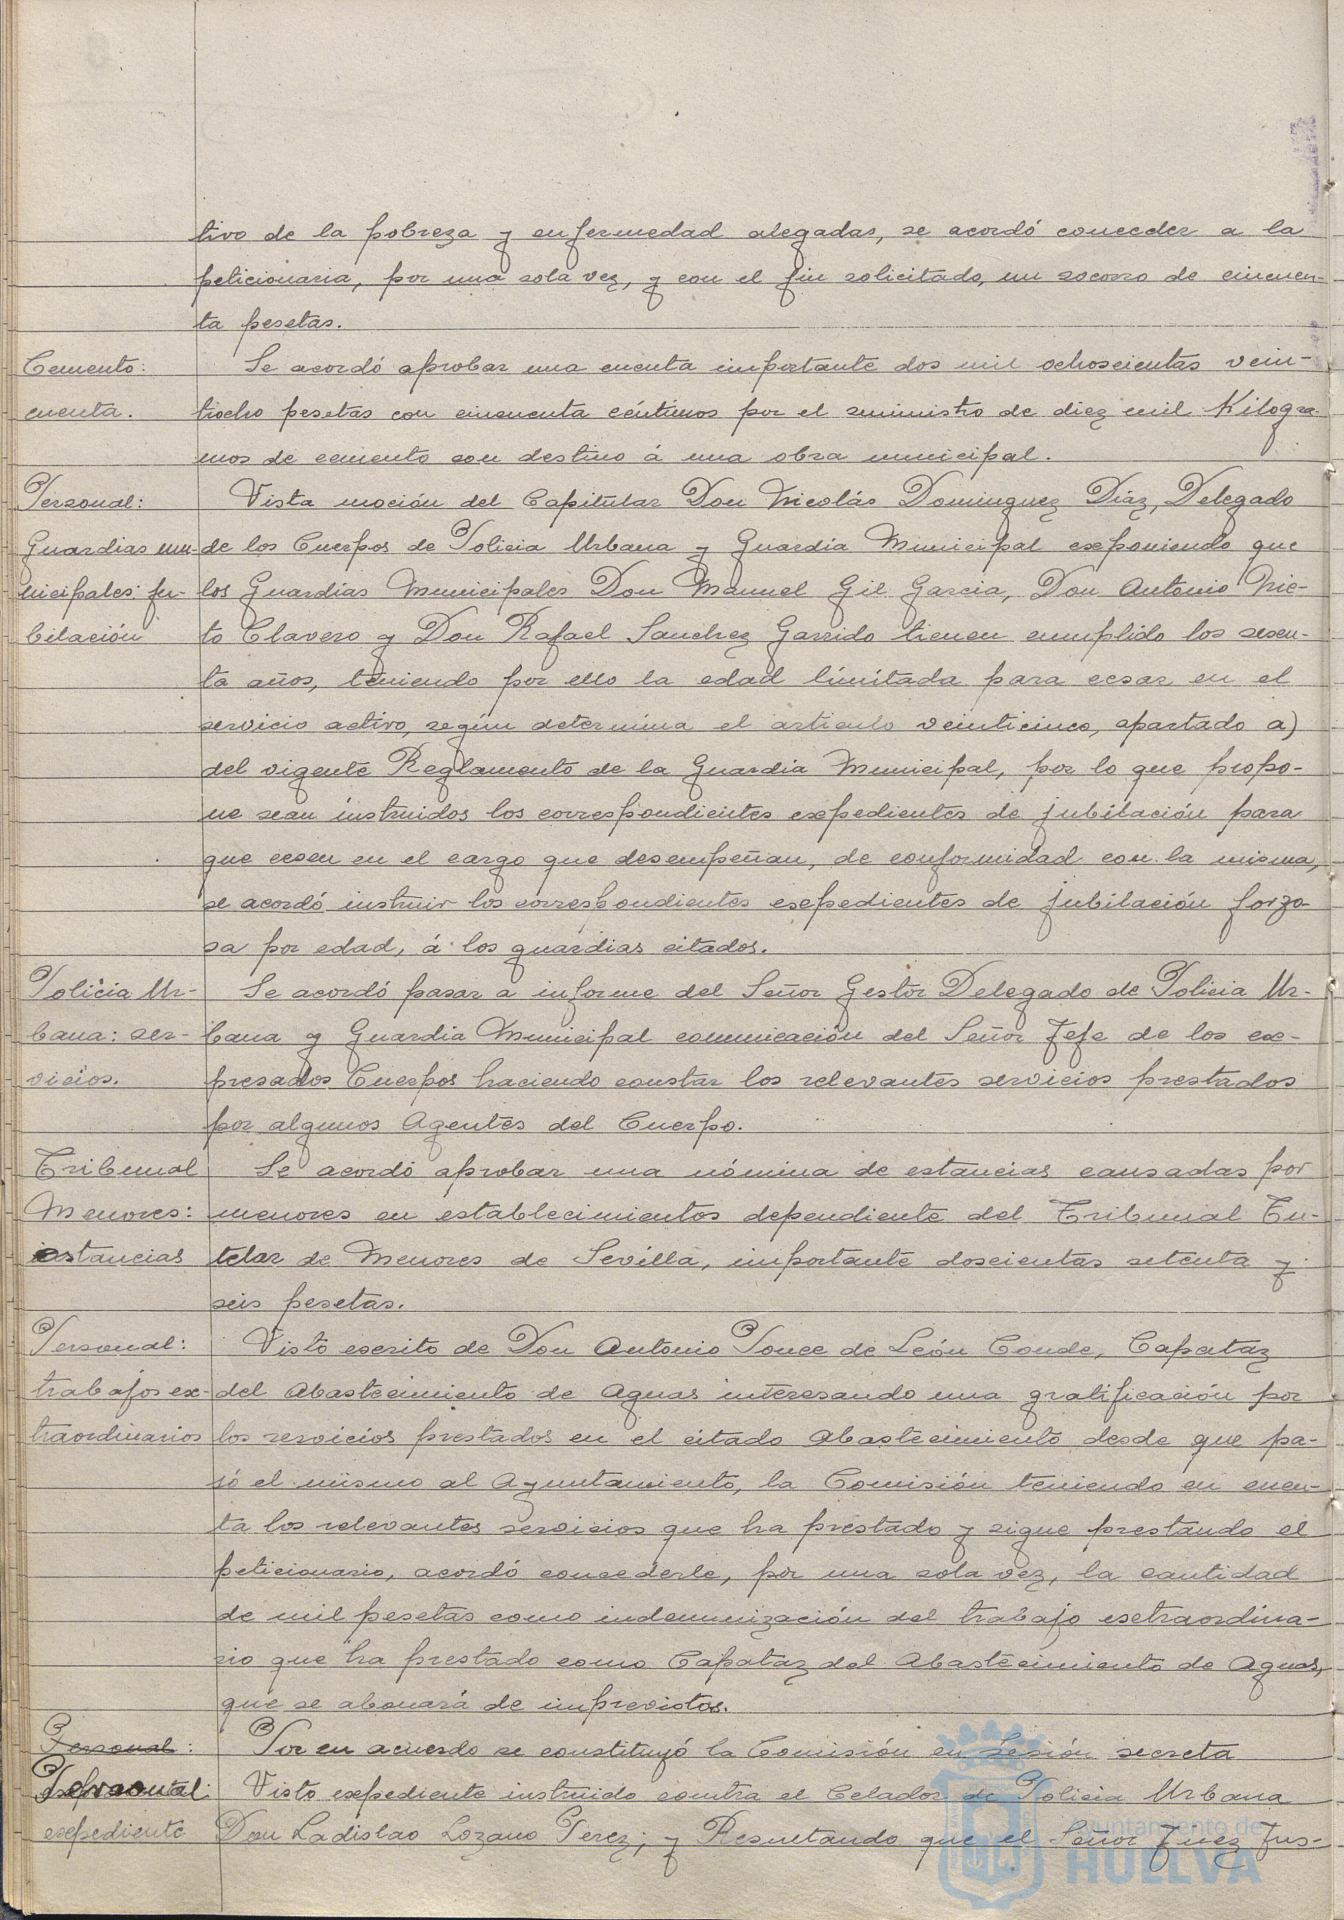 tivo de la pobreza y enfermedad alegadas, se acordó conceder a la
peticionaria, por una sola vez, y con el fin solicitado, un socorro de cincuen-
ta pesetas.
Cemento: Se acordó aprobar una cuenta importante dos mil ochoscientas vein-
cuenta. tiocho pesetas con cincuenta céntimos por el suministro de diez mil Kilogra-
mos de cemento con destino á una obra municipal.
Personal: Vista moción del Capitular Don Nicolás Dominguez Diaz, Delegado
Guardias mu- de los Cuerpos de Policia Urbana y Guardia Municipal exponiendo que
nicipales: ju- los Guardias Municipales Don Manuel Gil Garcia, Don Antonio Nie-
bilación to Clavero y Don Rafael Sanchez Garrido tienen cumplido los sesen-
ta años, teniendo por ello la edad limitada para cesar en el
servicio activo, según determina el articulo veinticinco, apartado a)
del vigente Reglamento de la Guardia Municipal, por lo que propo-
ne sean instruidos los correspondientes expedientes de jubilación para
que cesen en el cargo que desempeñan, de conformidad con la misma,
se acordó instruir los correspondientes expedientes de jubilación forzo-
sa por edad, á los guardias citados.
Policia Ur- Se acordó pasar a informe del Señor Gestor Delegado de Policia Ur-
bana: ser- bana y Guardia Municipal comunicación del Señor Jefe de los ex-
vicios. presados Cuerpos haciendo constar los relevantes servicios prestados
por algunos Agentes del Cuerpo.
Tribunal Se acordó aprobar una nómina de estancias causadas por
Menores: menores en establecimientos dependiente del Tribunal Tu-
estancias telar de Menores de Sevilla, importante doscientas setenta y
seis pesetas.
Personal: Visto escrito de Don Antonio Ponce de León Conde, Capataz
trabajos ex- del Abastecimiento de Aguas interesando una gratificación por
traordinarios los servicios prestados en el citado Abastecimiento desde que pa-
só el mismo al Ayuntamiento, la Comisión teniendo en cuen-
ta los relevantes servicios que ha prestado y sigue prestando el
peticionario, acordó concederle, por una sola vez, la cantidad
de mil pesetas como indemnización del trabajo extraordina-
rio que ha prestado como Capataz del Abastecimiento de Aguas,
que se abonará de imprevistos.
Personal: Por en acuerdo se constituyó la Comisión en Sesión secreta
Personal: Visto expediente instruido contra el Celador de Policia Urbana
expediente Don Ladislao Lozano Perez; y Resultando que el Señor Juez Jns-
Ayuntamiento de
HUELVA